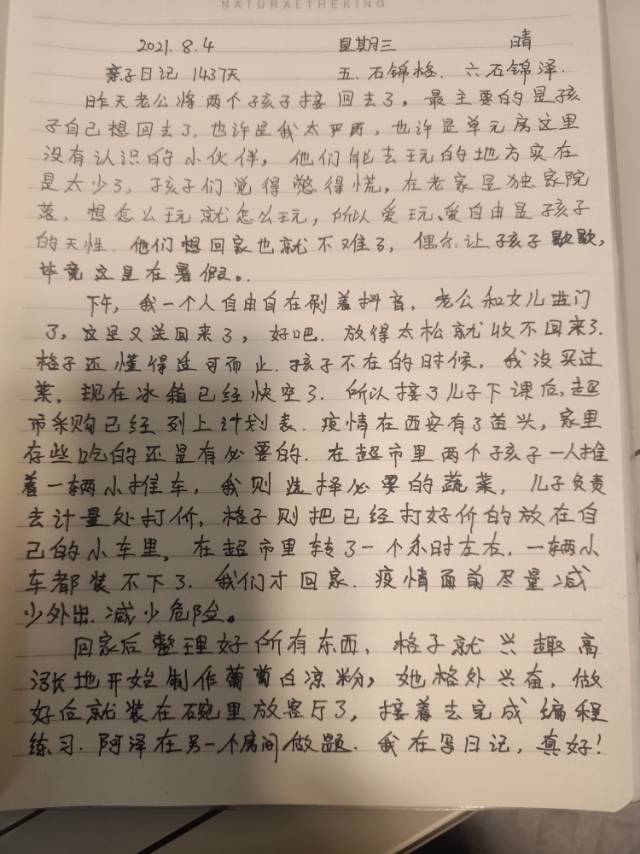 NATURALTHEKING
2021.8.4 星期三 晴
亲子日记 1437天 五.石锦格. 六石锦泽.
昨天老公将两个孩子接回去了，最主要的是孩
子自己想回去了.也许是我太严厉，也许是单元房这里
没有认识的小伙伴，他们能去玩的地方实在
是太少了，孩子们觉得憋得慌，在老家是独家院
落，想怎么玩就怎么玩，所以爱玩、爱自由是孩子
的天性.他们想回家也就不难了，偶尔让孩子歇歇，
毕竟这是在暑假。
下午，我一个人自由自在刷着抖音，老公和女儿进门
了，这是又送回来了，好吧.放得太松就收不回来了.
格子还懂得适可而止.孩子不在的时候，我没买过
菜，现在冰箱已经快空了.所以接了儿子下课后，超
市采购已经列上计划表.疫情在西安有了苗头，家里
存些吃的还是有必要的.在超市里两个孩子一人推
着一辆小推车，我则选择必要的蔬菜，儿子负责
去计量处打价，格子则把已经打好价的放在自
己的小车里，在超市里转了一个小时左右，一辆小
车都装不下了.我们才回家.疫情面前尽量减
少外出.减少危险。
回家后整理好所有东西，格子就兴趣高
涨地开始制作葡萄白凉粉，她格外兴奋，做
好后就装在碗里放客厅了，接着去完成编程
练习.阿泽在另一个房间做题.我在写日记，真好！